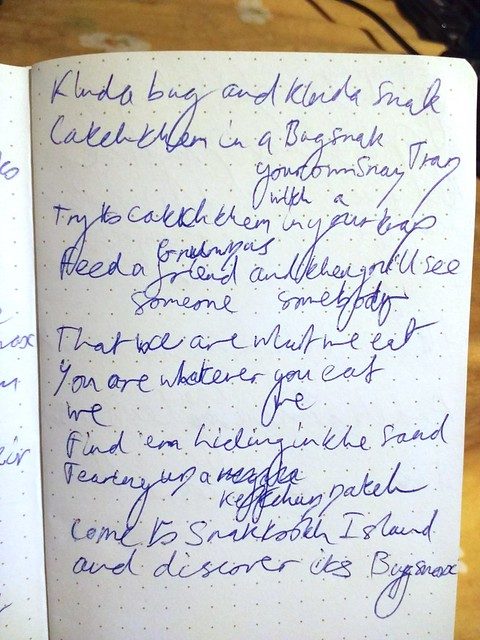 Kinda bug and kinda snak
Catch them in a Bugsnak Trap
your own Snax
with a
Try to catch them in your trap
Grumpus
Feed a friend and then you'll see
someone somebody
That we are what we eat
You are whatever you eat
we we
Find 'em hiding in the sand
Tearing up a
ketchup patch
Come to Snaktooth Island
and discover its Bugsnax